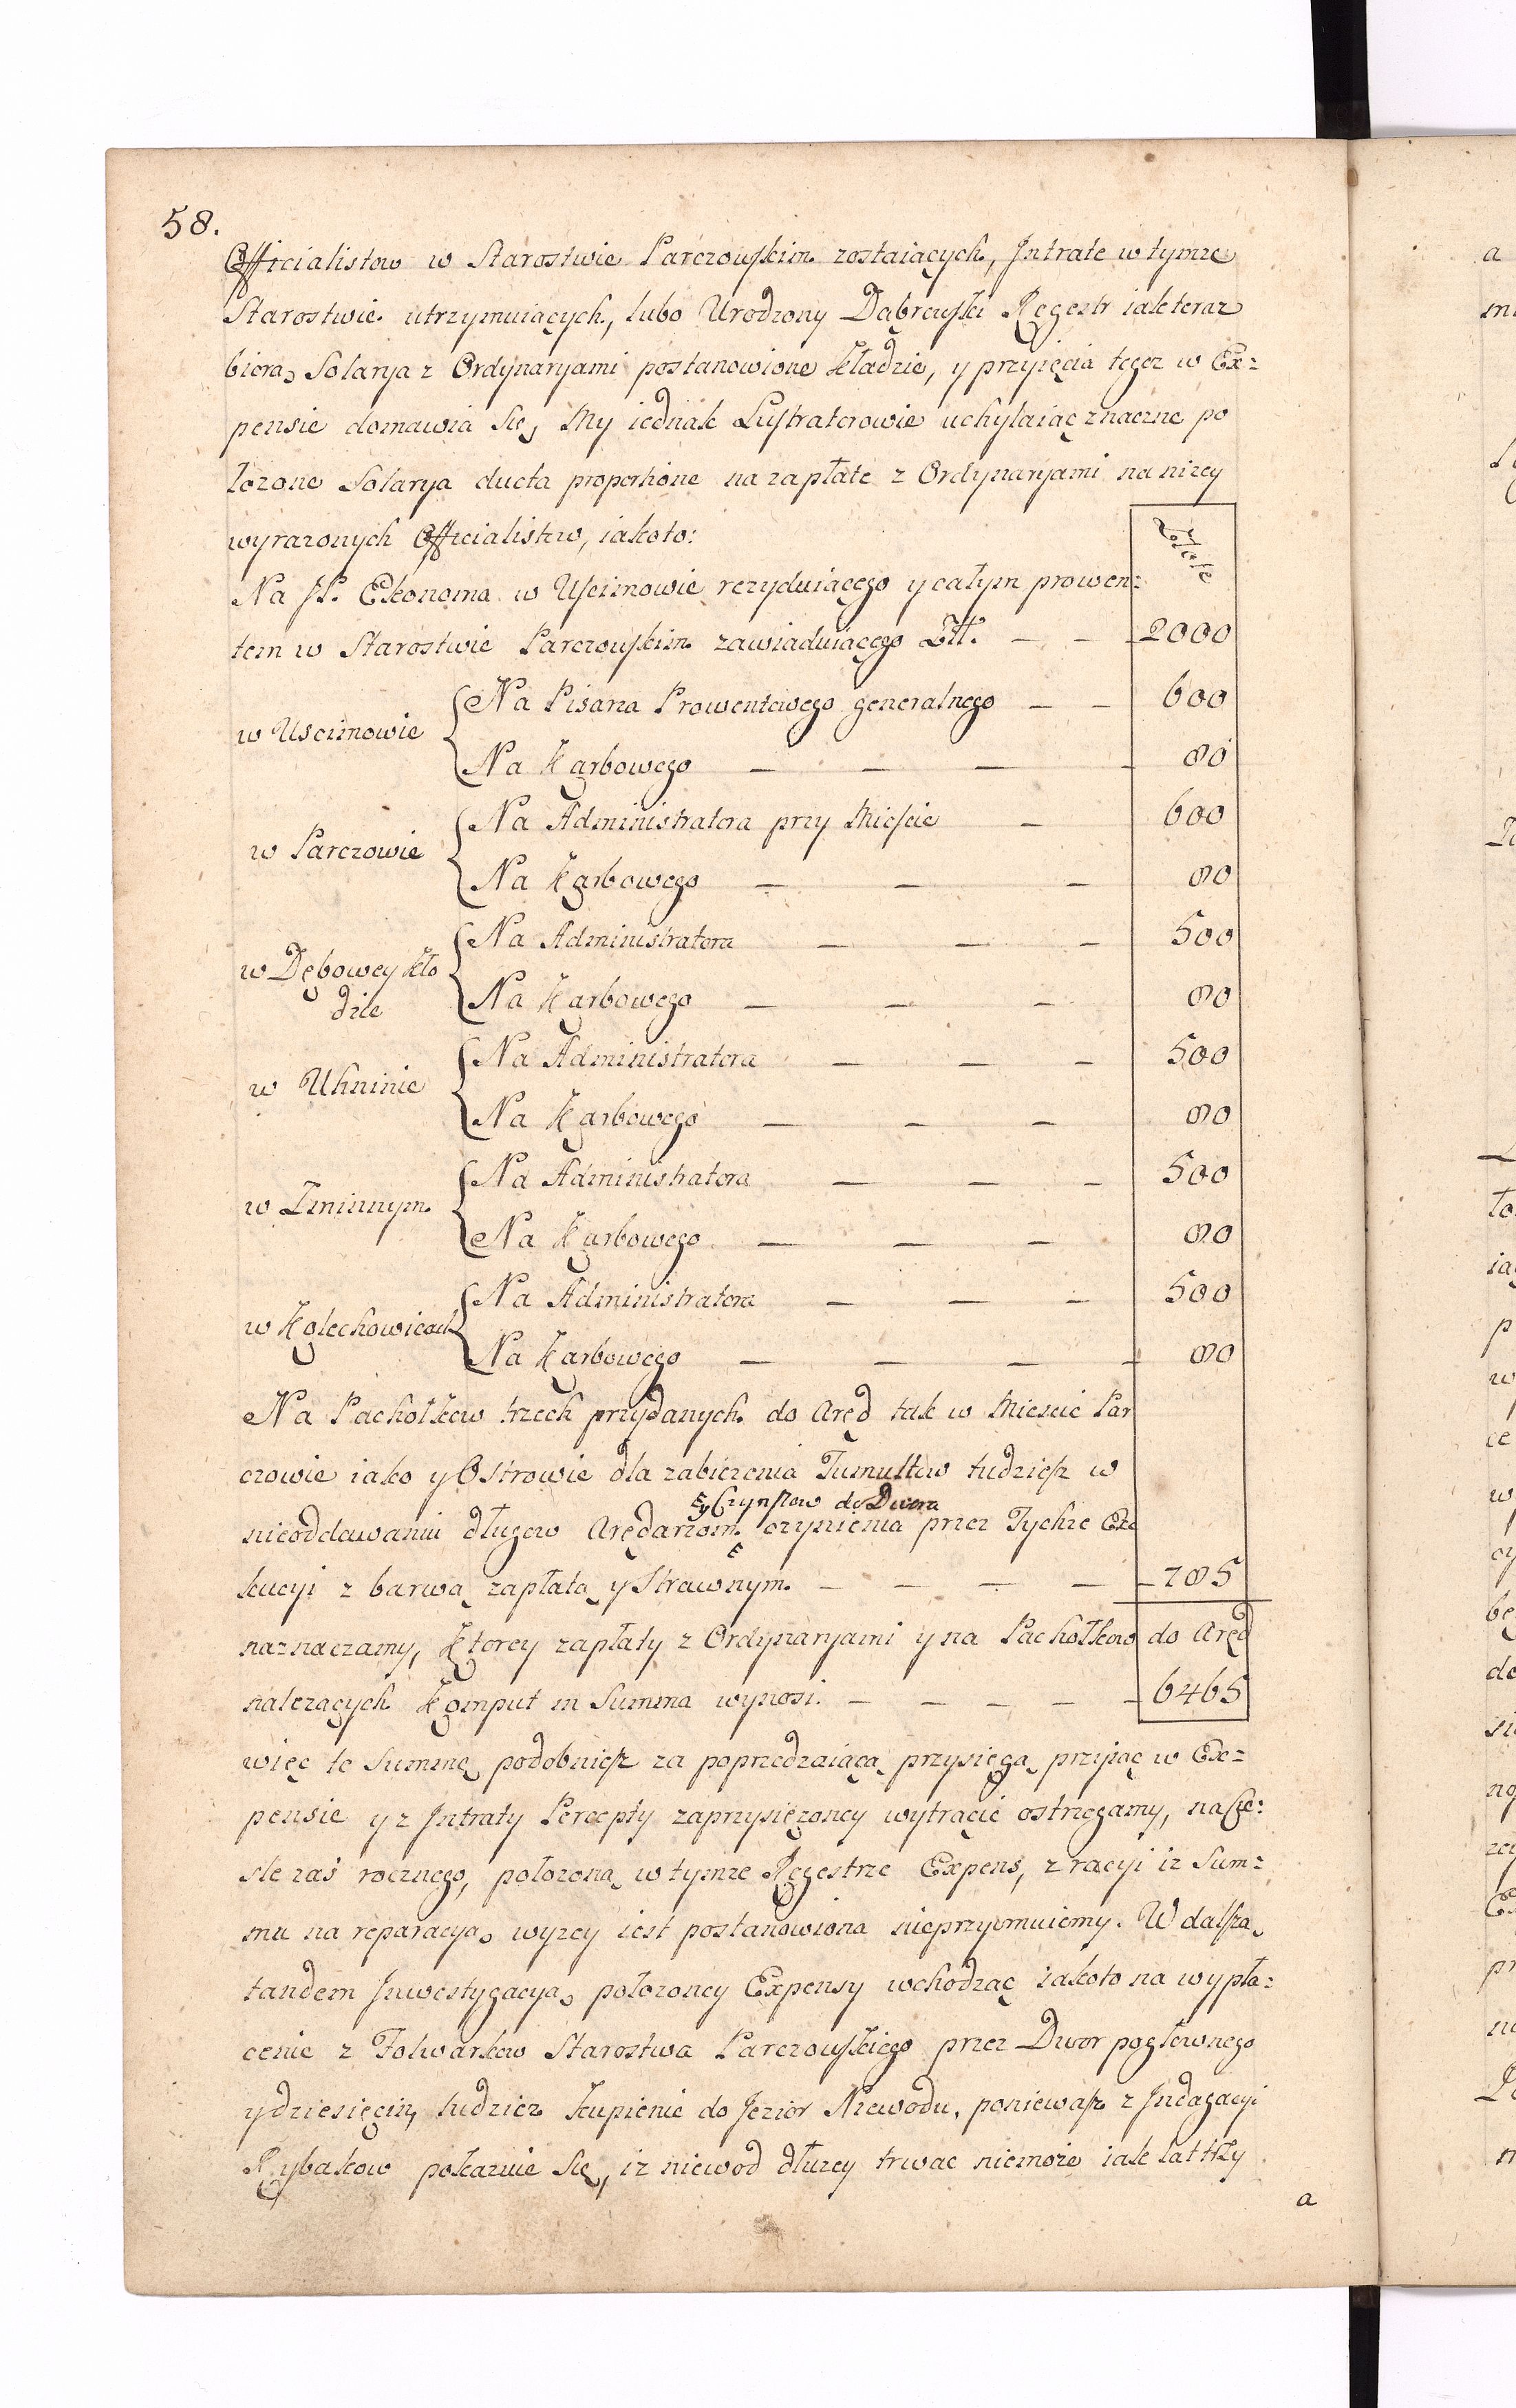 58.
Officialistow w Starostwie Parczowskim zostaiących, Intratę w tymze
Starostwie utrzymuiących, lubo Urodzony Dąbrowski Regestr iak teraz
biorą Solarya z Ordynaryami postanowione kładzie, y przyięcia tegoz w Ex=
pensie domawia się, My iednak Lustratorowie uchylaiąc znaczne po
łozone Solarya ducta proportione na zapłatę z Ordynaryami na nizey
wyrazonych Officialistow, iakoto:
Złote
Na JP. Ekonoma w Uscimowie rezyduiącego y całym prowen=
tem w Starostwie Parczowskim zawiaduiącego Złł. — — 2000
w Uscimowie
Na Pisarza Prowentowego generalnego — — 600
Na Karbowego — — — 80
w Parczowie
Na Administratora przy Mieście — 600
Na Karbowego — — — 80
w Dębowey Kło
dzie
Na Administratora — — — 500
Na Karbowego — — — 80
w Uhninie
Na Administratora — — — 500
Na Karbowego — — — 80
w Zmiinnym
Na Administratora — — — 500
Na Karbowego — — — 80
w Kolechowicach
Na Administratora — — — 500
Na Karbowego — — — — 80
Na Pachołkow trzech przydanych do Aręd tak w Miescie Par
czowie iako y Ostrowie dla zabiezenia Tumultow tudziesz w
y Czynszow do Dwora
nieoddawaniu długow Arędarzom czynienia przez Tychze Exe
kucyi z barwą zapłatą y Strawnym. — — — — 785
naznaczamy, Ktorey zapłaty z Ordynaryami y na Pachołkow do Aręd
nalezących Komput in Summa wynosi. — — — — 6465
więc tę Summę podobniesz za poprzedzaiącą przysięgą przyiąc w Ex=
pensie y z Intraty Percepty zaprzysięzoney wytrącic ostrzegamy, na Cie=
sle zaś rocznego, połozoną w tymze Regestrze Expens, z racyi iz Sum=
ma na reparacyą wyzey iest postanowiona nieprzyimuiemy. W dalszą
tandem Inwestygacyą połozoney Expensy wchodząc iakoto na wypła=
cenie z Folwarkow Starostwa Parczowskiego przez Dwor pogłownego
y dziesięcin, tudziez Kupienie do Jezior Niewodu, poniewasz z Indagacyi
Rybakow pokazuie się, iz niewod dłuzey trwac niemoże iak lat trzy
a